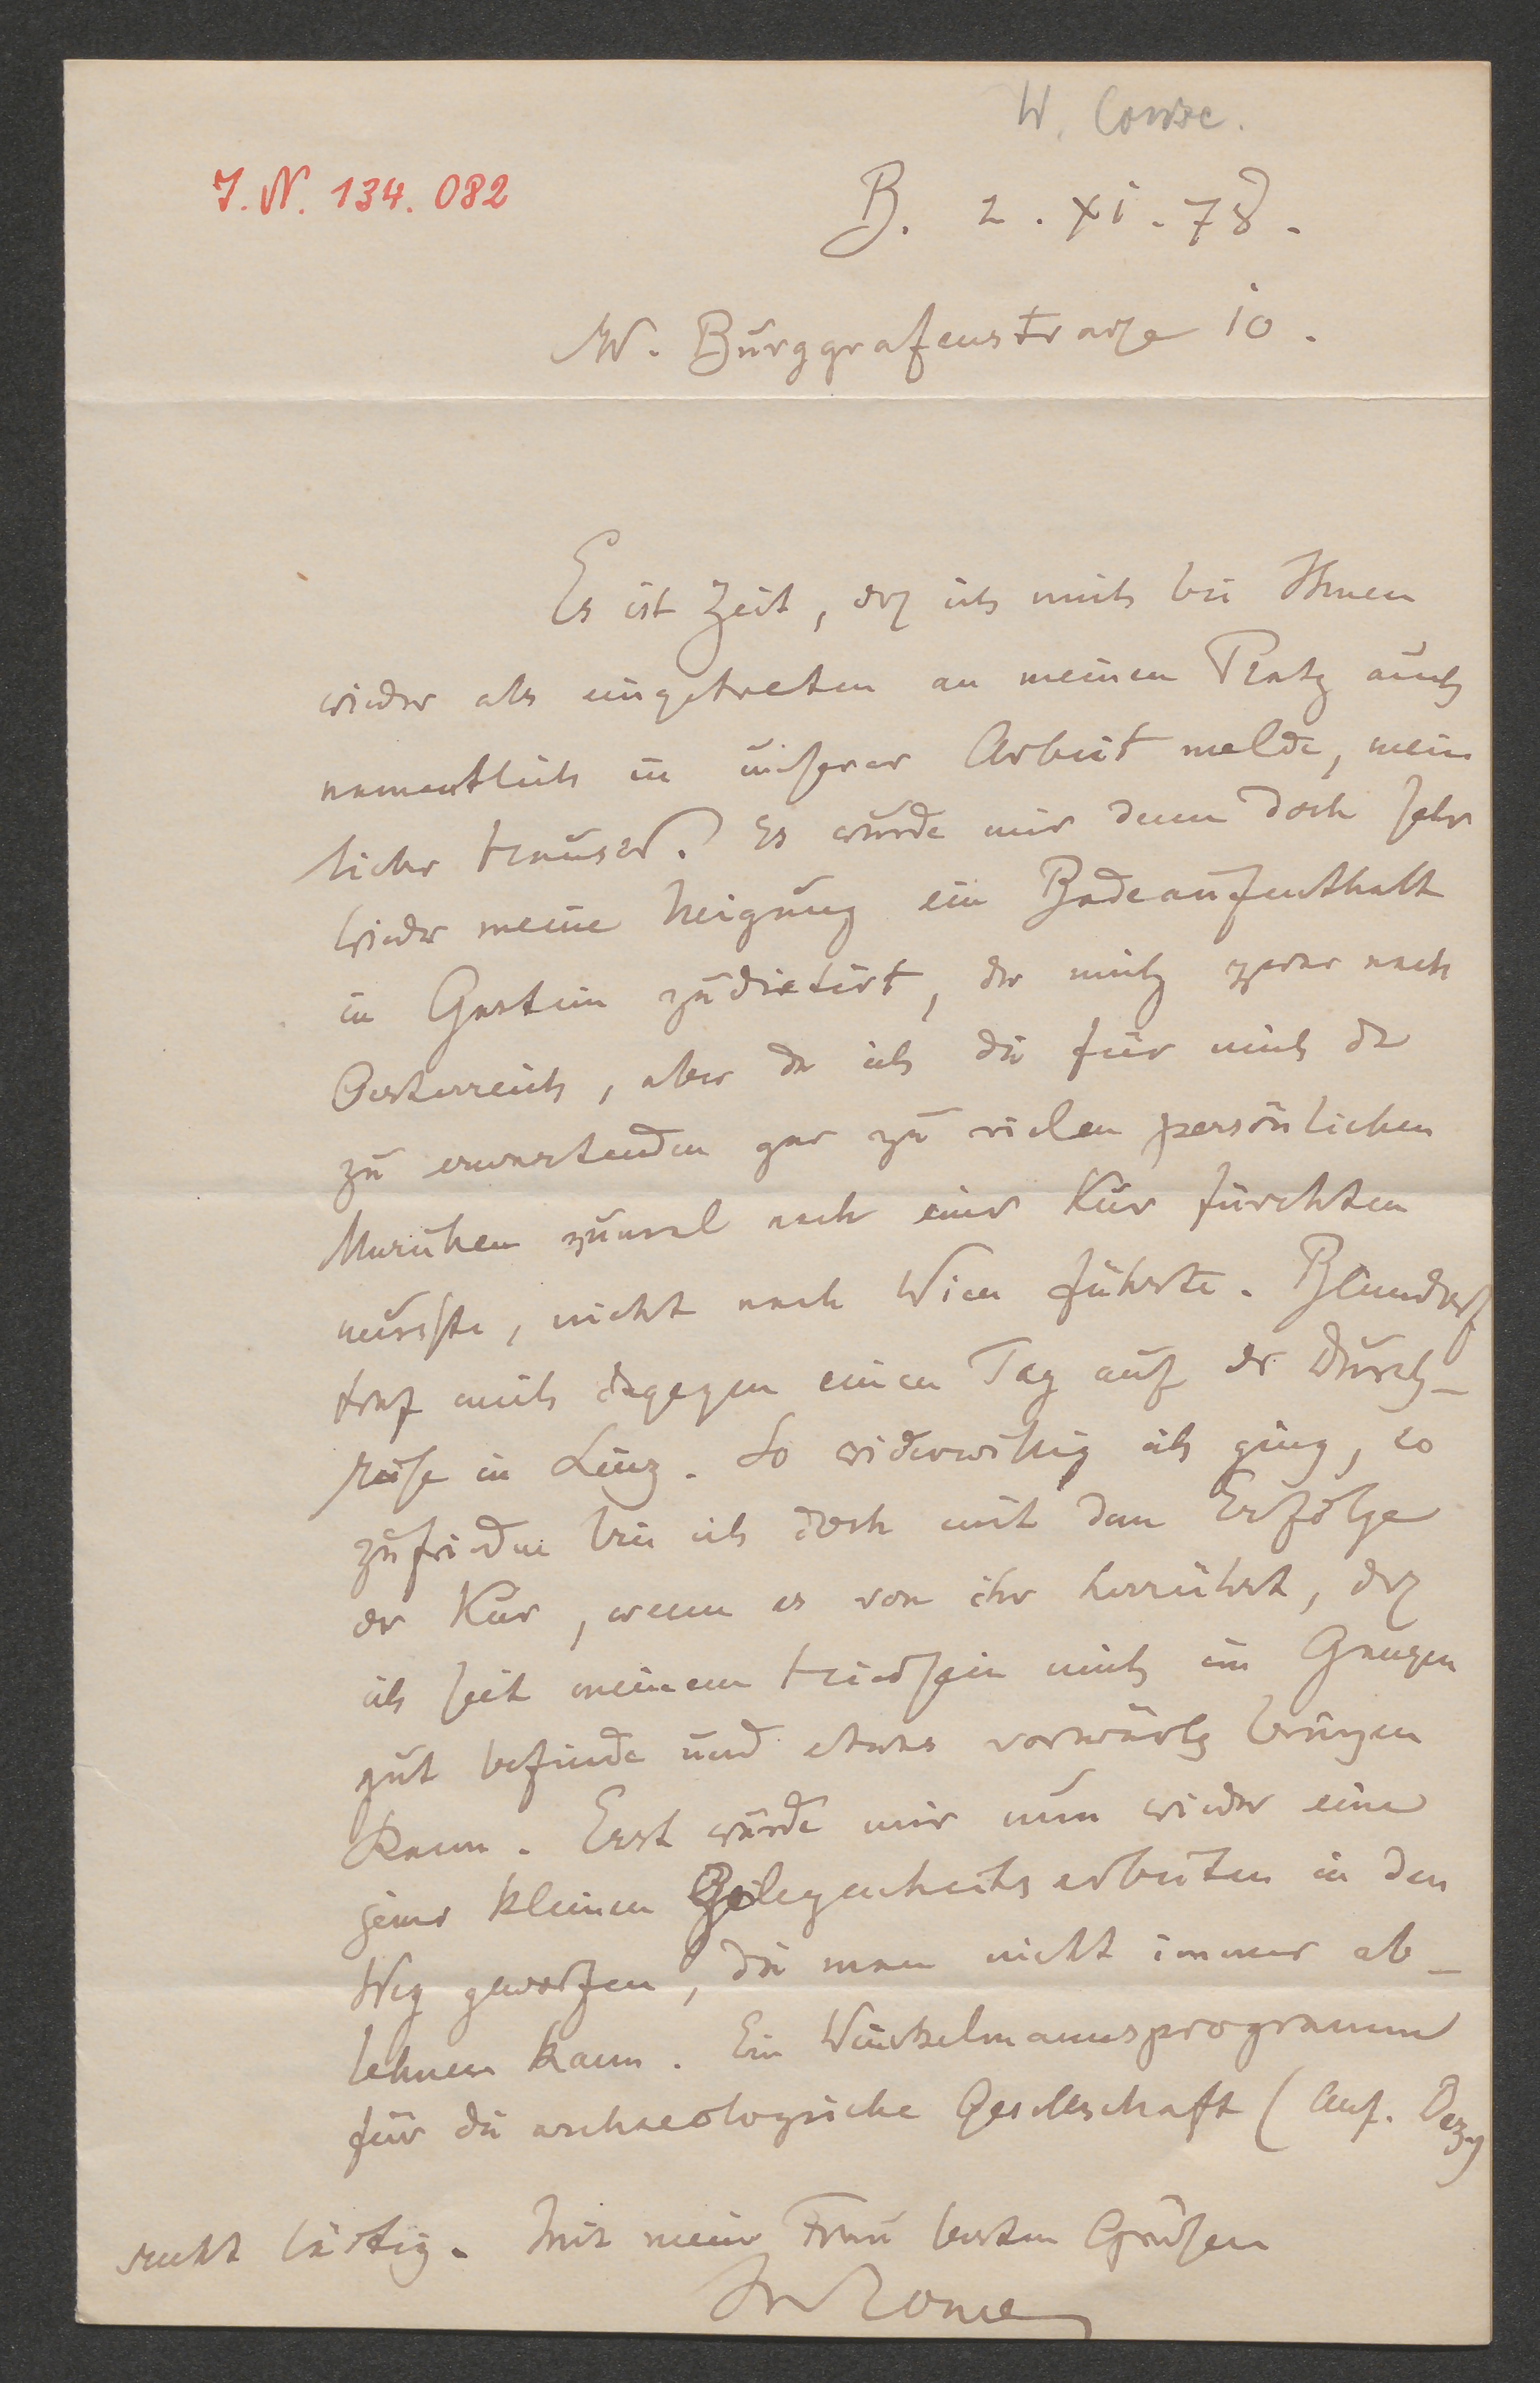 W. Conze.
J. N. 134.082
B. 2. XI. 78.
W. Burggrafenstraße 10.
Es ist Zeit, daß ich mich bei Ihnen
wieder als eingetreten an meinen Platz auch
namentlich in unserer Arbeit melde, mein
lieber Hauser. Es wurde mir denn doch sehr
wieder meine Neigung ein Badeaufenthalt
in Gastein zudictirt, der mich zwar nach
Oesterreich, aber da ich die für mich da
zu erwartenden gar zu vielen persönlichen
Unruhen zumal nach einer Kur fürchten
mussste, nicht nach Wien führte. Benndorf
traf mich dagegen einen Tag auf der Durch-
reise in Linz. So widerwillig ich ging, so
zufrieden bin ich doch mit dem Erfolge
der Kur, wenn es von ihr herrührt, daß
ich seit meinem Hiersein mich im Ganzen
gut befinde und etwas vorwärts bringen
kann. Erst wurde mir nun wieder eine
jener kleinen Gelegenheitsarbeiten in den
Weg geworfen, die man nicht immer ab-
lehnen kann. Ein Winckelmannsprogramm
für die archaeologische Gesellschaft (Anf. Dez.)
recht lästig. Mit meiner Frau besten Grüßen
Ihr Conze